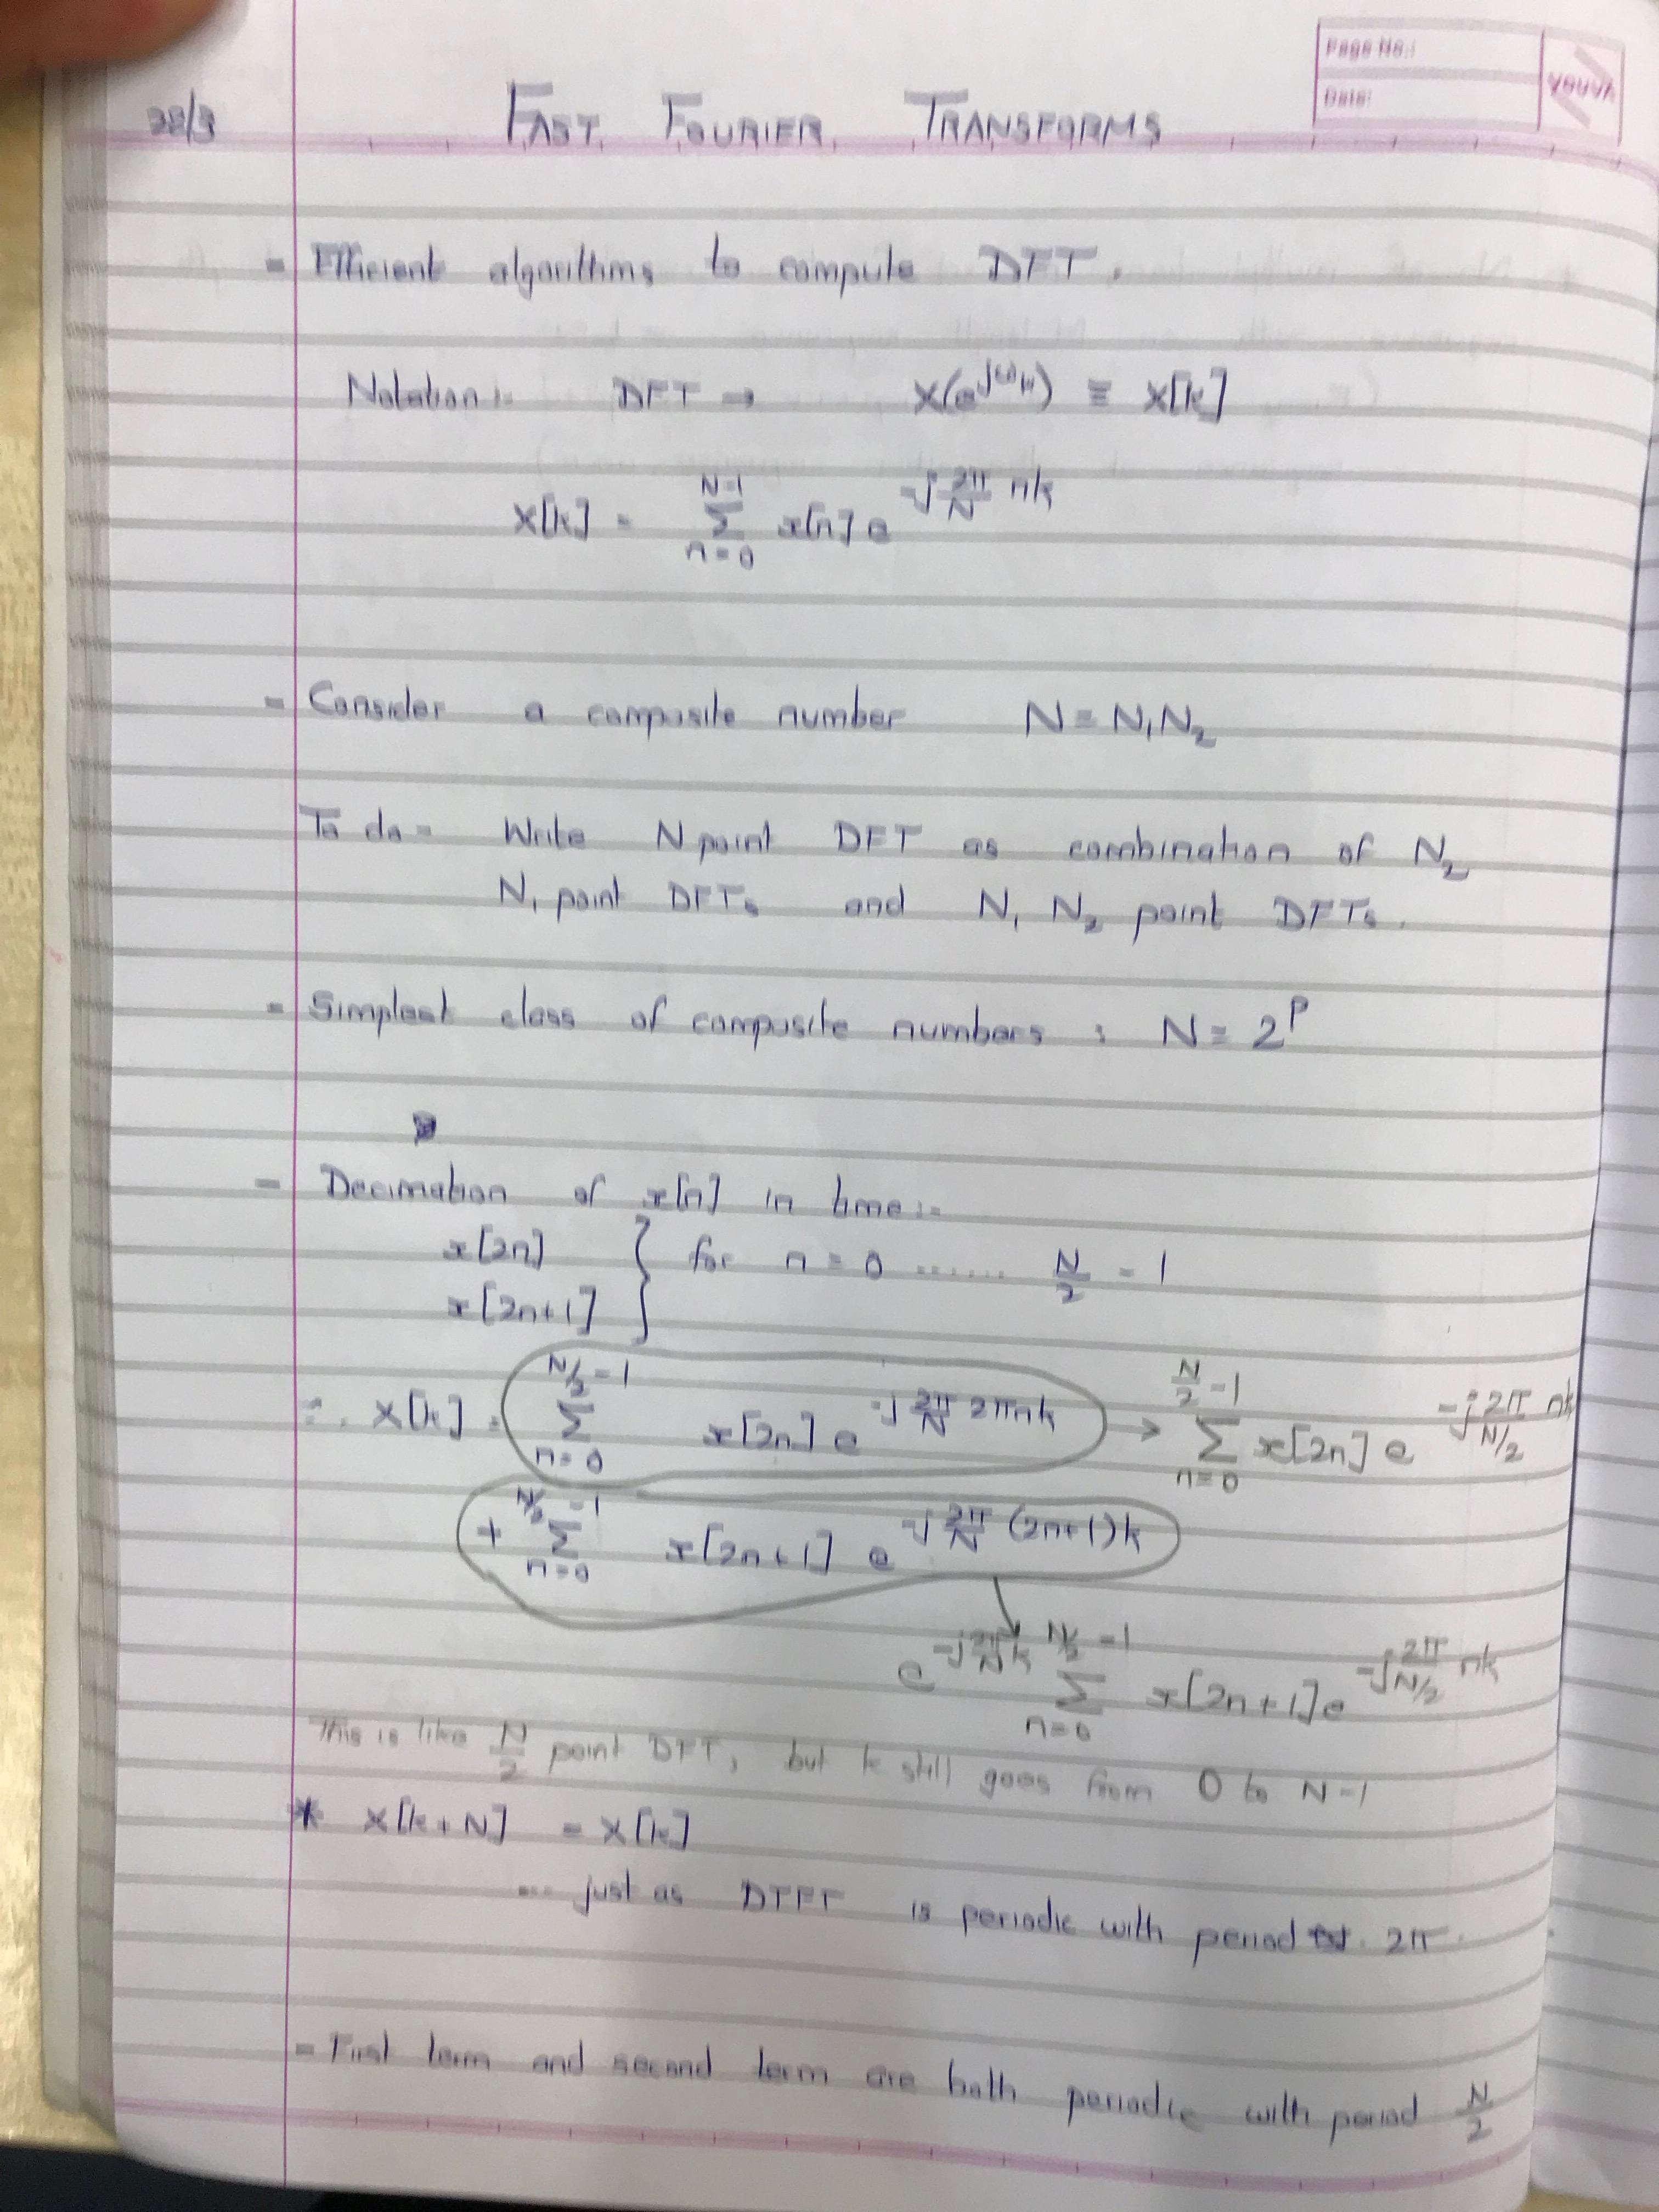 Page No.:
Date:
YOUVA
28/3
FAST FOURIER TRANSFORMS
- Efficient algorithms to compute DFT.
Notation:- DFT → X(e^{jω_k}) ≡ X[k]
X[k] = Σ_{n=0}^{N-1} x[n] e^{-j 2π/N nk}
- Consider a composite number N = N₁N₂
To do - Write N point DFT as combination of N₂
N₁ point DFTs and N₁ N₂ point DFTs.
- Simplest class of composite numbers : N = 2^P
- Decimation of x[n] in time:-
x[2n] } for n = 0 ...... N/2 - 1
x[2n+1]
∴ X[k] = Σ_{n=0}^{N/2-1} x[2n] e^{-j 2π/N 2πnk} → Σ_{n=0}^{N/2-1} x[2n] e^{-j 2π/(N/2) nk}
+ Σ_{n=0}^{N/2-1} x[2n+1] e^{-j 2π/N (2n+1)k}
e^{-j 2π/N k} Σ_{n=0}^{N/2-1} x[2n+1] e^{-j 2π/(N/2) nk}
This is like N/2 point DFT, but k still goes from 0 to N-1
* X[k+N] = X[k]
... just as DTFT is periodic with period 2π.
- First term and second term are both periodic with period N/2